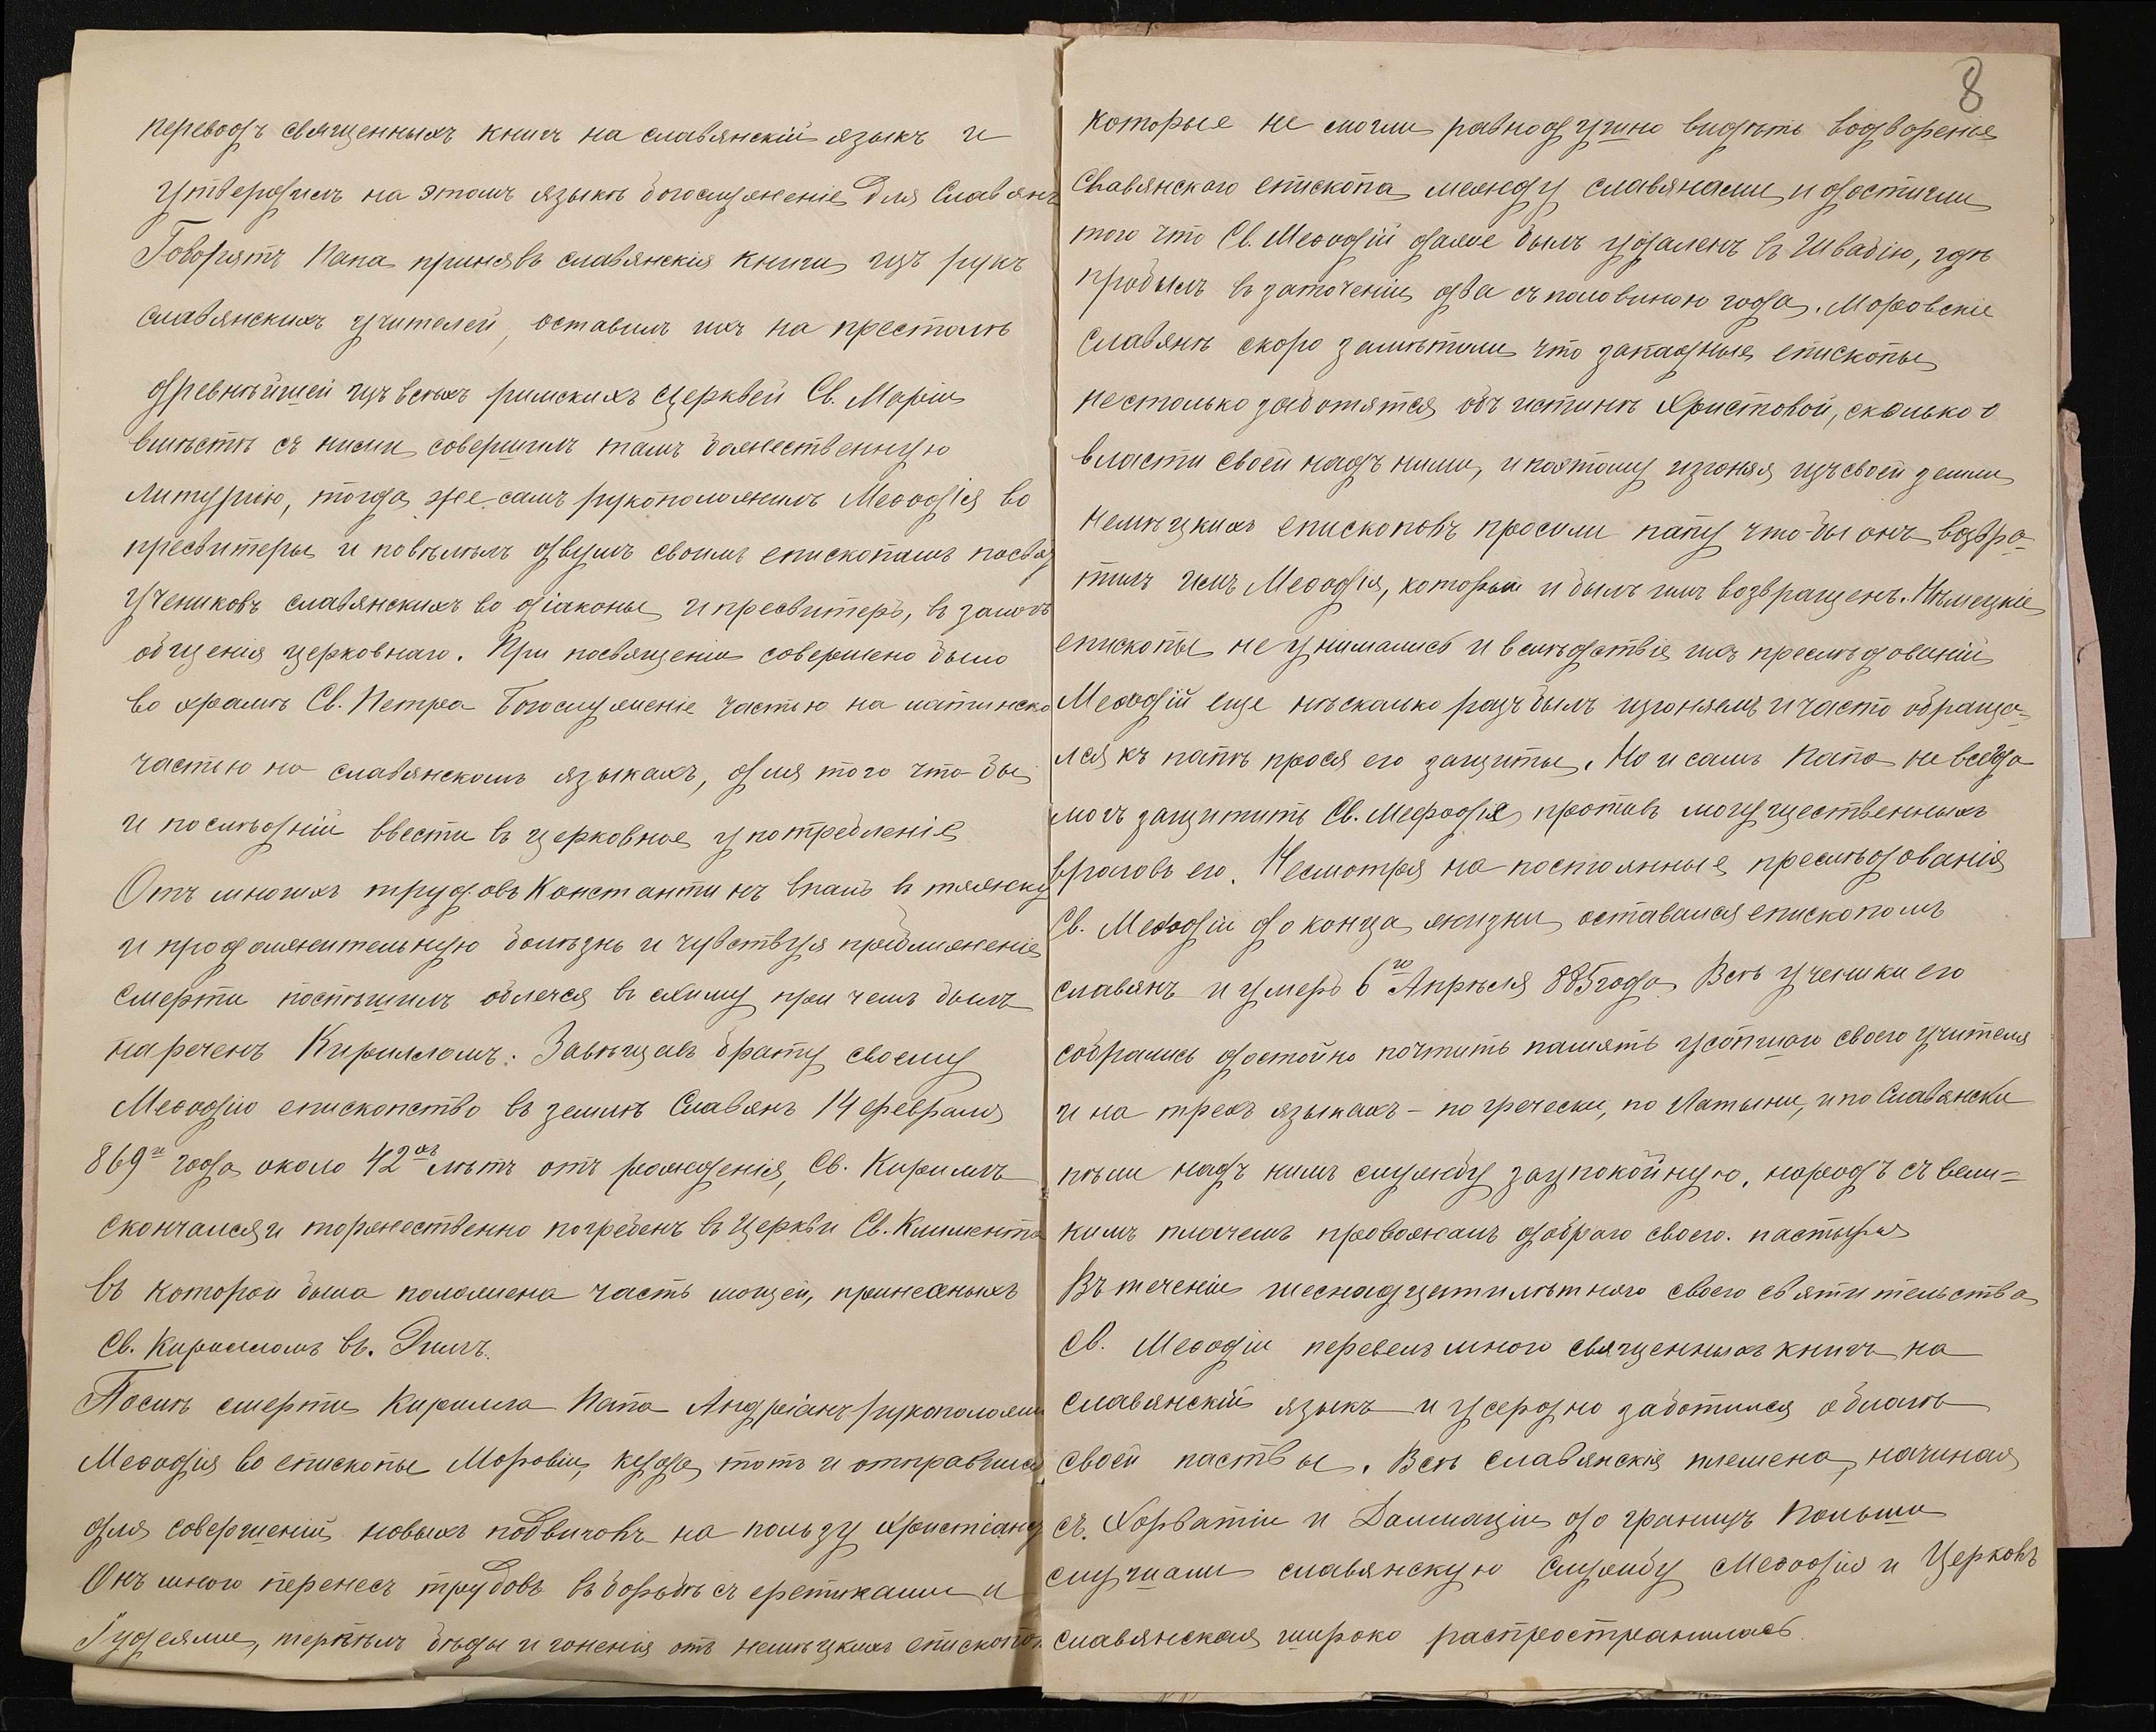 переводъ священныхъ книгъ на славянскій языкъ и
утвердилъ на этомъ языкѣ богослуженіе для Славянъ
Говорятъ Папа принявъ славянскія книги изъ рукъ
славянскихъ учителей, оставилъ ихъ на престолѣ
древнѣйшей изъ всѣхъ римскихъ Церквей Св. Маріи
вмѣстѣ съ ними совершилъ тамъ божественную
литургію, тогда же самъ рукоположилъ Меѳодія во
пресвитеры и повѣлѣлъ двумъ своимъ епископамъ посвя
учениковъ славянскихъ во діаконы и пресвитеръ, въ залогъ
общенія церковнаго. При посвященіи совершено было
во храмѣ Св. Петра Богослуженіе частію на латинско
частію на славянскомъ языкахъ, для того что бы
и послѣдній ввести въ церковное употребленіе
Отъ многихъ трудовъ Константинъ впалъ въ тяжку
и продолжительную болѣзнь и чувствуя приближеніе
смерти поспѣшилъ облечся въ схиму при чемъ былъ
нареченъ Кирилломъ: Завѣщавъ брату своему
Меѳодію епископство въ землѣ Славянъ 14 февраля
869г года около 42хъ лѣтъ отъ рожденія, Св. Кириллъ
скончался и торжественно погребенъ въ Церкви Св. Климента
въ которой была положена часть мощей, принесныхъ
Св. Кирилломъ въ. Римъ.
Послѣ смерти Кирилла Папа Андріанъ рукоположи
Меѳодія во епископы Моровіи, куда тотъ и отправился
для совершеній новыхъ подвиговъ на пользу христіанс
Онъ много перенесъ трудовъ въ борьбѣ съ еретиками и
Іудеями, терпѣлъ бѣды и гоненія отъ немѣцкихъ епископо
8
которые не могли равнодушно видѣть водвореніе
Славянского епископа между славянами и достигли
того что Св. Меѳодій даже былъ удаленъ въ Швабію, гдѣ
пробылъ въ заточеніи два съ половиною года. Моровскіе
Славянѣ скоро замѣтили что западные епископы
нестолько заботятся объ истинѣ Христовой, сколько о
власти своей надъ ними, и поэтому изгоняя изъ своей земли
немѣцкихъ епископовъ просили папу что-бы онъ возвра-
тилъ имъ Меѳодія, который и былъ имъ возвращенъ. Нѣмецкіе
епископы не унимались и вслѣдствія ихъ преслѣдованій
Меѳодій еще нѣсколько разъ былъ изгоняемъ и часто обраща-
лся къ папѣ прося его защиты. Но и самъ Папа не всегда
могъ защитить Св. Мефодія противъ могущественныхъ
враговъ его. Несмотря на постоянные преслѣдованія
Св. Меѳодій до конца жизни оставался епископомъ
славянъ и умеръ 6го Апрѣля 885 года. Всѣ ученики его
собрались достойно почтить память усопшаго своего учителя
и на трехъ языкахъ - по гречески, по Латыни, и по Славянски
пѣли надъ нимъ службу заупокойную, народъ съ вели=
кимъ плачемъ провожалъ добраго своего. пастыря
Въ теченіи шеснадцатилѣтняго своего святительства
Св. Меѳодій перевелъ много священныхъ книгъ на
славянскій языкъ и усердно заботился о благѣ
своей паствы. Всѣ славянскія племена, начиная
съ. Хорватіи и Далмаціи до границъ Польши
слушали славянскую Службу Меѳодія и Церковь
славянская широко распространилась.